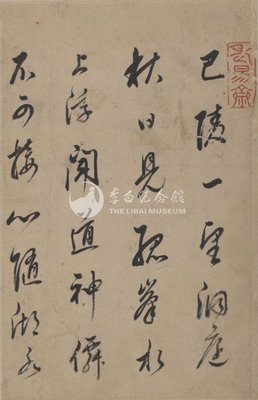 巴陵一望洞庭
秋日見孤峯水
上浮聞道神僊
不可接心隨湖水
李白纪念馆
THE LIBAI MUSEUM